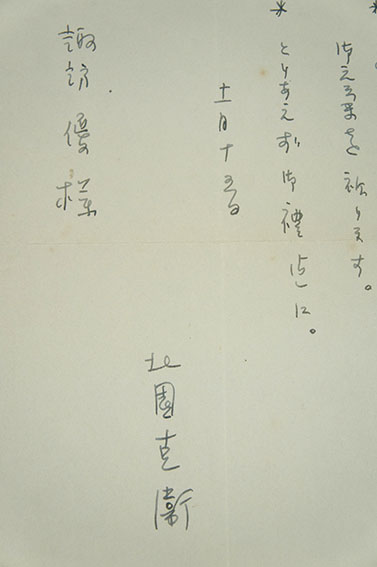 *
御元気を祈ります。
*
とりあえず御禮迄に。
十一月十五日
北園克衛
諏訪優様